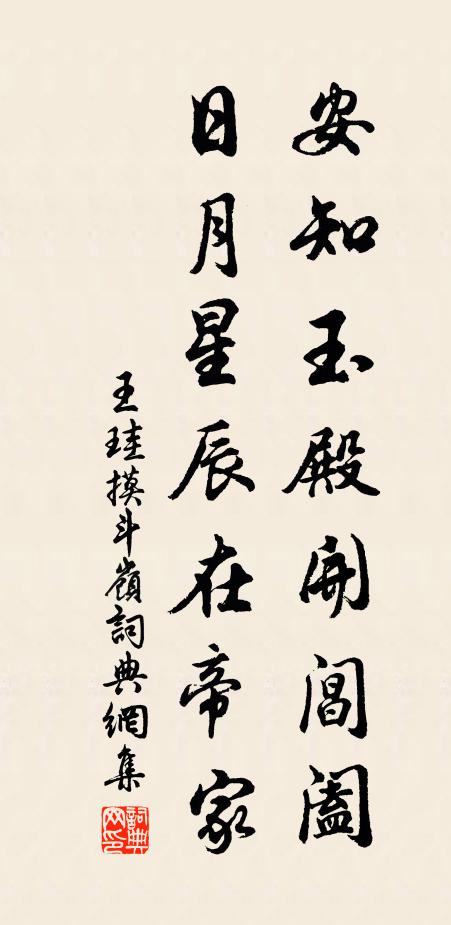 安知玉殿開閶闔
日月星辰在帝家
王珪摸斗嶺詞典網集
詞典網印